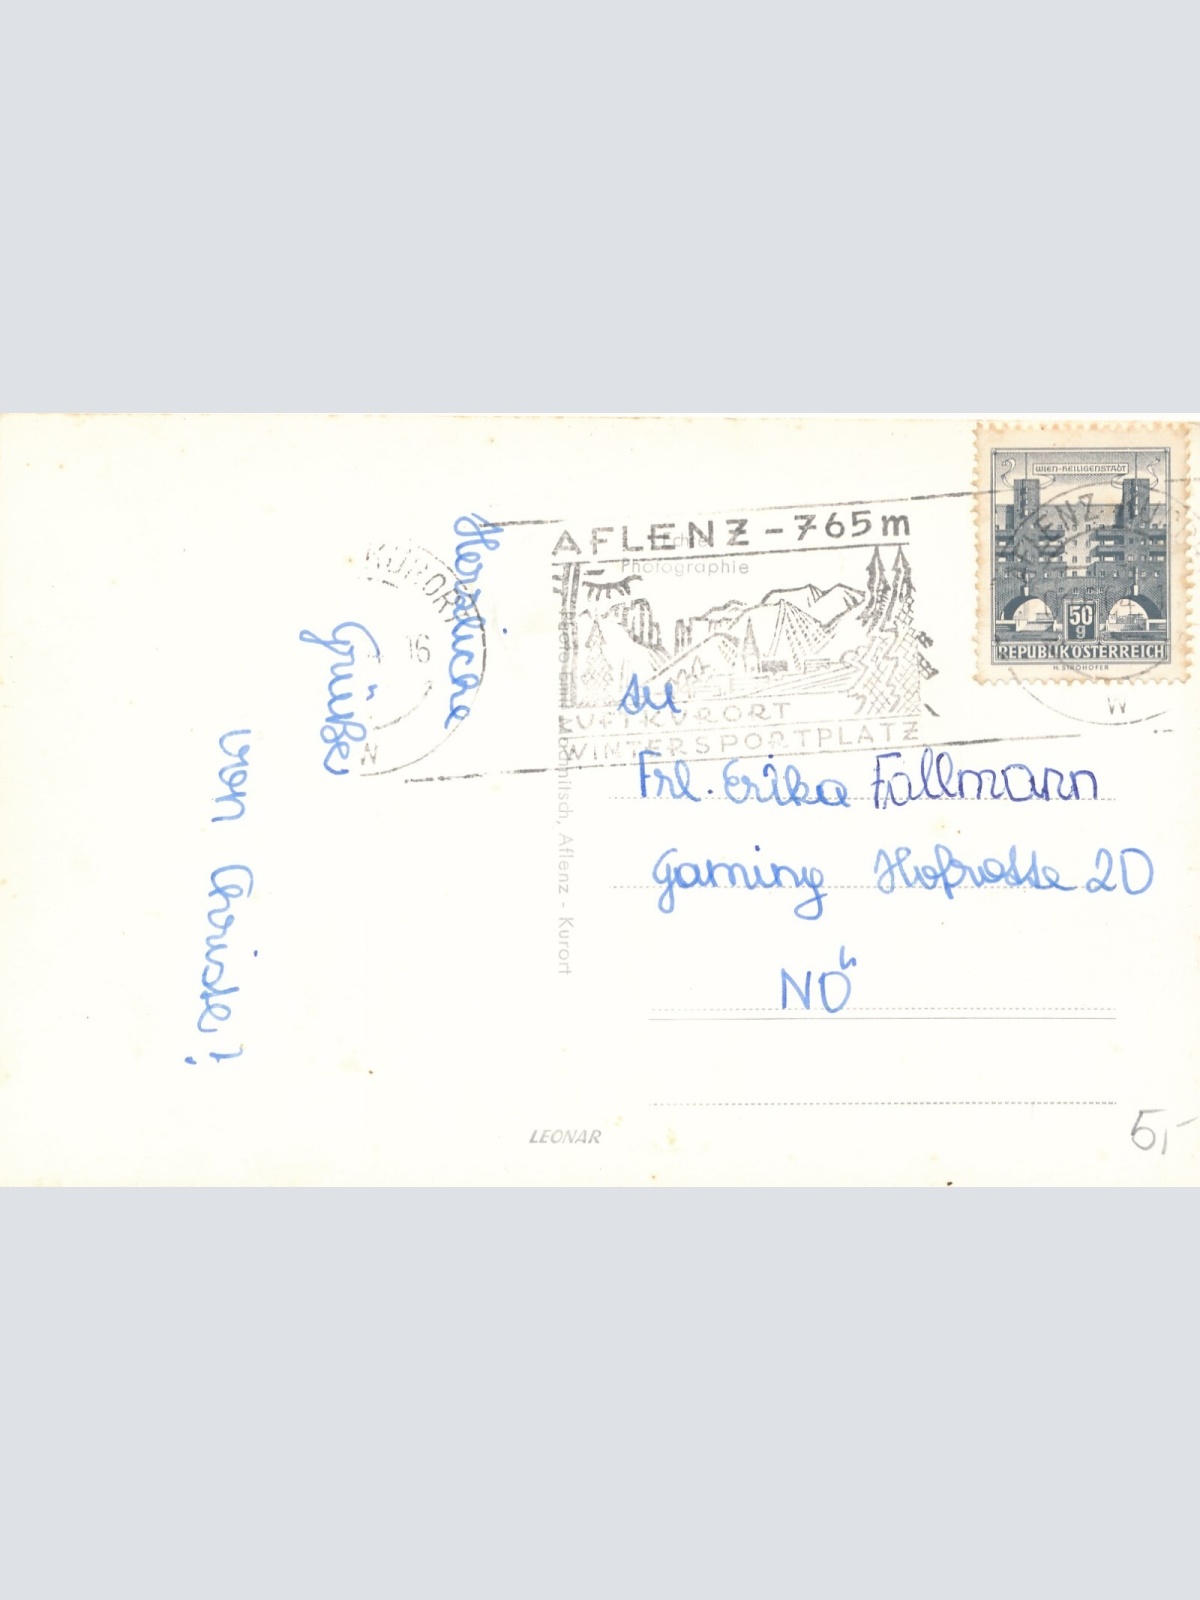 Herzliche
Grüße
von Christe!
KURORT
16
W
AFLENZ - 765m
LUFTKURORT
WINTERSPORTPLATZ
Echte
Photographie
Aflenz - Kurort
WIEN-HEILIGENSTADT
50
g
REPUBLIK ÖSTERREICH
H. STROHOFER
AFLENZ
W
An
Frl. Erika Fallmann
Gaming 20
NÖ
LEONAR
5,-